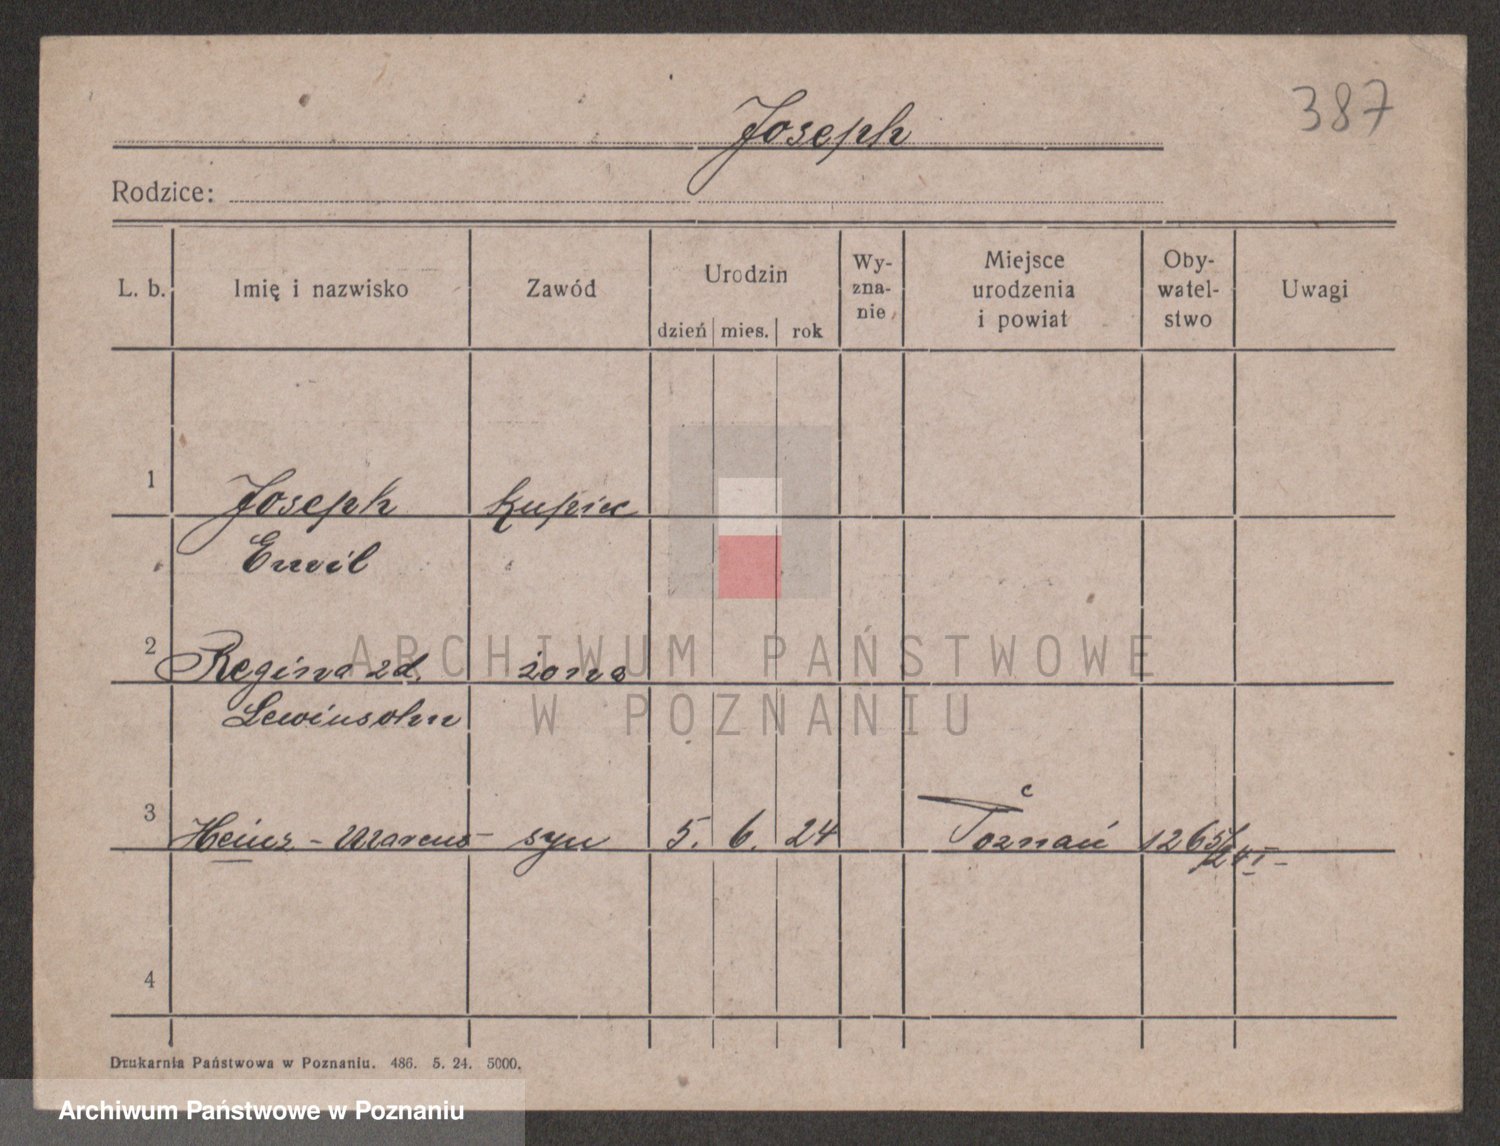 387
Joseph
Rodzice:
L. b. Imię i nazwisko Zawód Urodzin dzień mies. rok Wy-zna-nie Miejsce urodzenia i powiat Oby-watel-stwo Uwagi
1 Joseph kupiec
Emil
2 Regina zd. żona
Lewinsohn
3 Heinz - Marcus syn 5. 6. 24 Poznań 1265/24 I
4
Drukarnia Państwowa w Poznaniu. 486. 5. 24. 5000.
ARCHIWUM PAŃSTWOWE
W POZNANIU
Archiwum Państwowe w Poznaniu